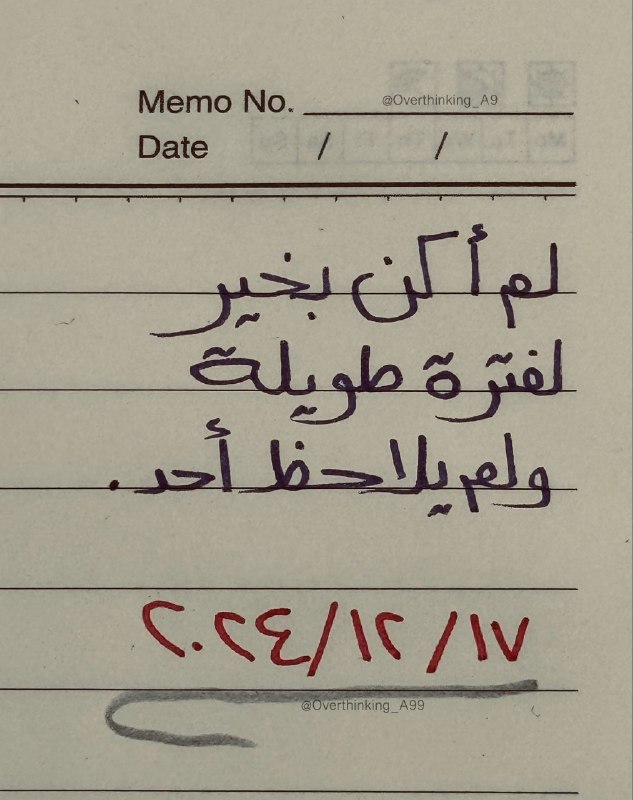 Memo No. @Overthinking_A9
Date / /
لم أكن بخير
لفترة طويلة
ولم يلاحظ أحد.
٢٠٢٤/١٢/١٧
@Overthinking_A99